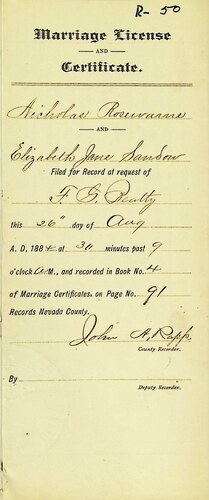 R- 50
Marriage License
AND
Certificate.
Nicholas Rosewarne
AND
Elizabeth Jane Sandow
Filed for Record at request of
F. G. Beatty
this 26" day of Aug
A. D. 1884 at 30 minutes past 9
o'clock A M., and recorded in Book No. 4
of Marriage Certificates, on Page No. 91
Records Nevada County.
John A. Rapp
County Recorder.
By
Deputy Recorder.